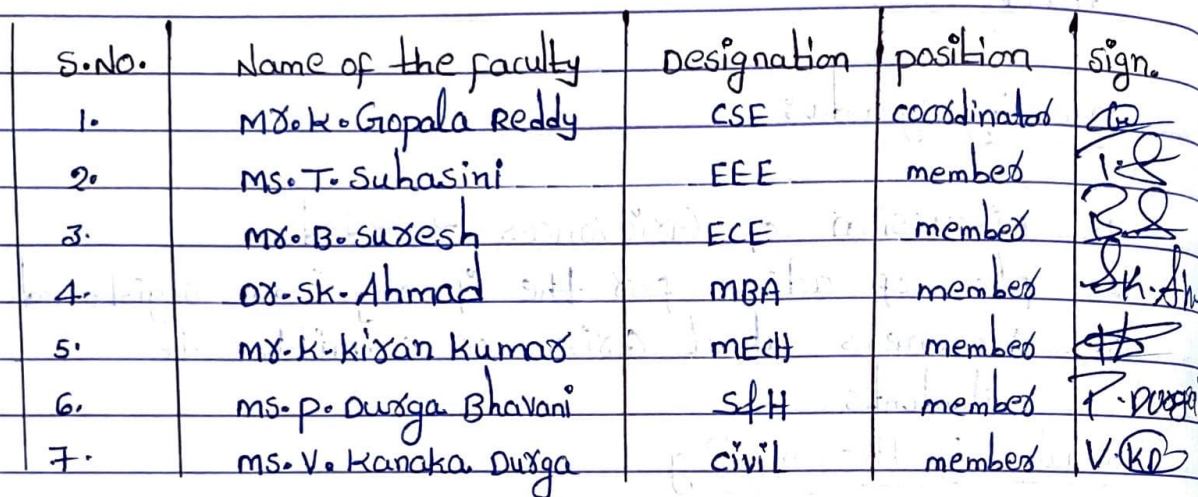 S.No. Name of the faculty Designation position sign.
1. Mr.K.Gopala Reddy CSE coordinator
2. Ms.T.Suhasini EEE member T.S
3. Mr.B.Suresh ECE member BS
4. Dr.SK.Ahmad MBA member SK.Ah
5. Mr.K.Kiran Kumar MECH member
6. Ms.P.Durga Bhavani S&H member P.Durga
7. Ms.V.Kanaka Durga civil member V.KD